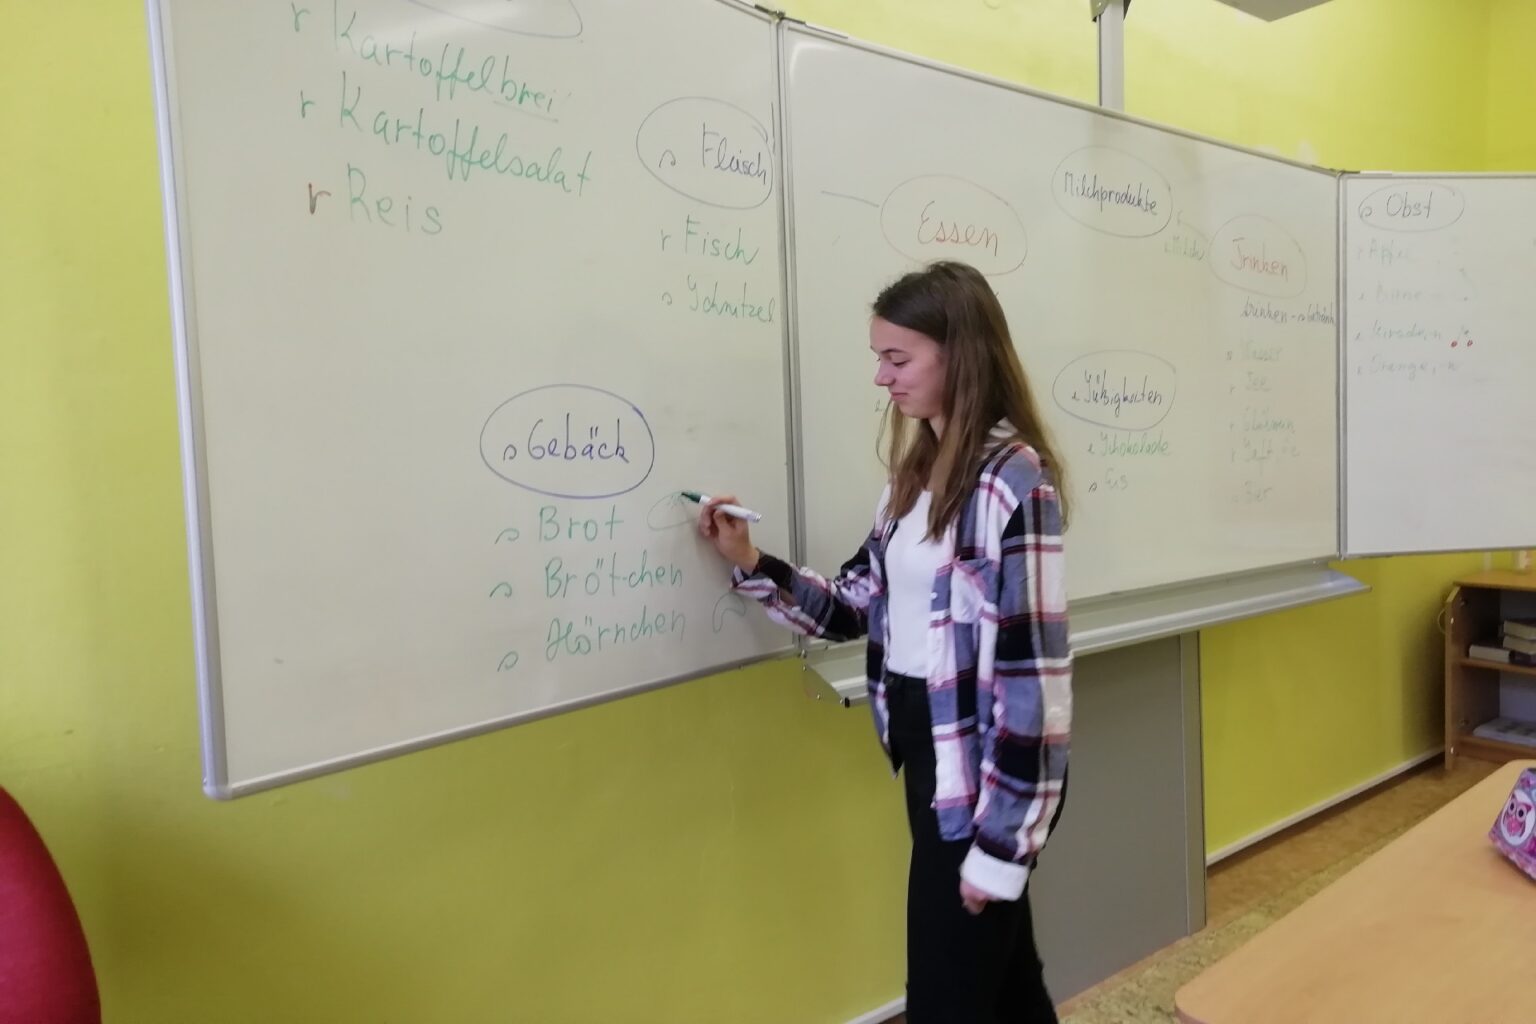 r Kartoffelbrei
r Kartoffelsalat
r Reis
s Fleisch
r Fisch
s Schnitzel
s Gebäck
s Brot
s Bröt-chen
s Hörnchen
Essen
Milchprodukte
e Milch
Trinken
trinken - s Getränk
s Wasser
r Tee
r Glühwein
r Saft, ä-e
s Bier
e Süßigkeiten
e Schokolade
s Eis
s Obst
r Apfel
e Birne
e Kirsche, n
e Orange, -n